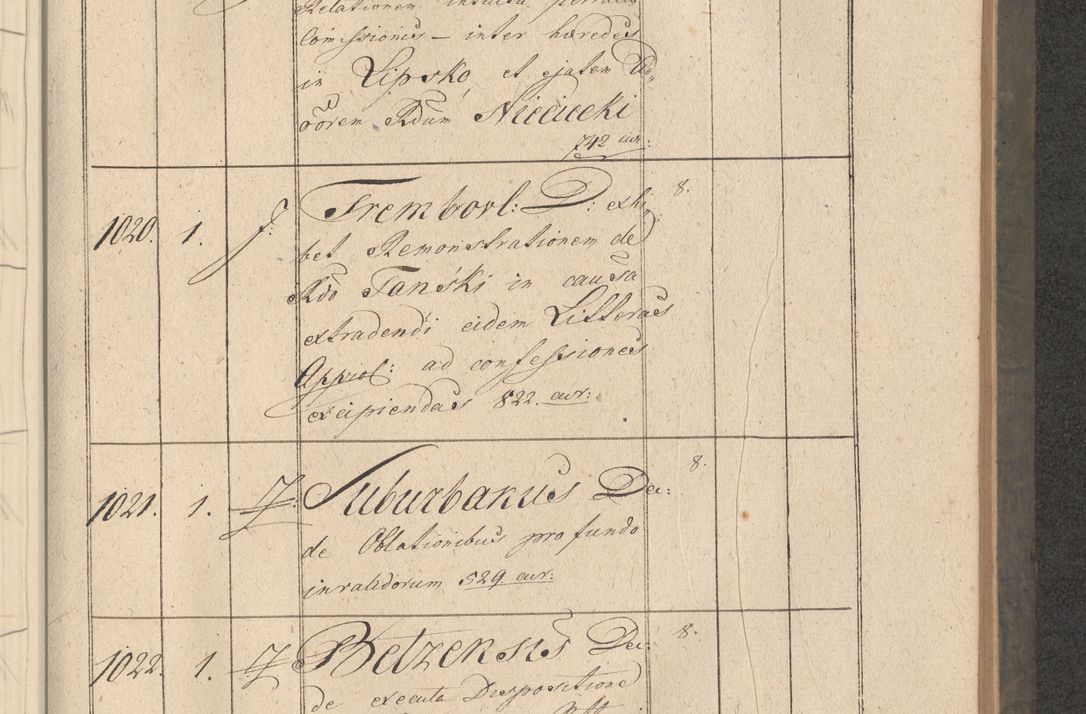 Relationem intuitu
Comissionis – inter haeredes
in Lipsko, et ejatem
oorem Rdum Niciecki
742 cur:
1020. 1. J: Trembovl: D: exhi 8.
bet Remonstrationem de
Rdo Tański in causa
extradendi eidem Litteras
Approb: ad confessiones
excipiendas 822. cur:
1021. 1. J: Suburbanus Dec: 8.
de Oblationibus pro fundo
invalidorum 529 cur:
1022. 1. J: Belzensis Dec: 8.
de executa Dispositione